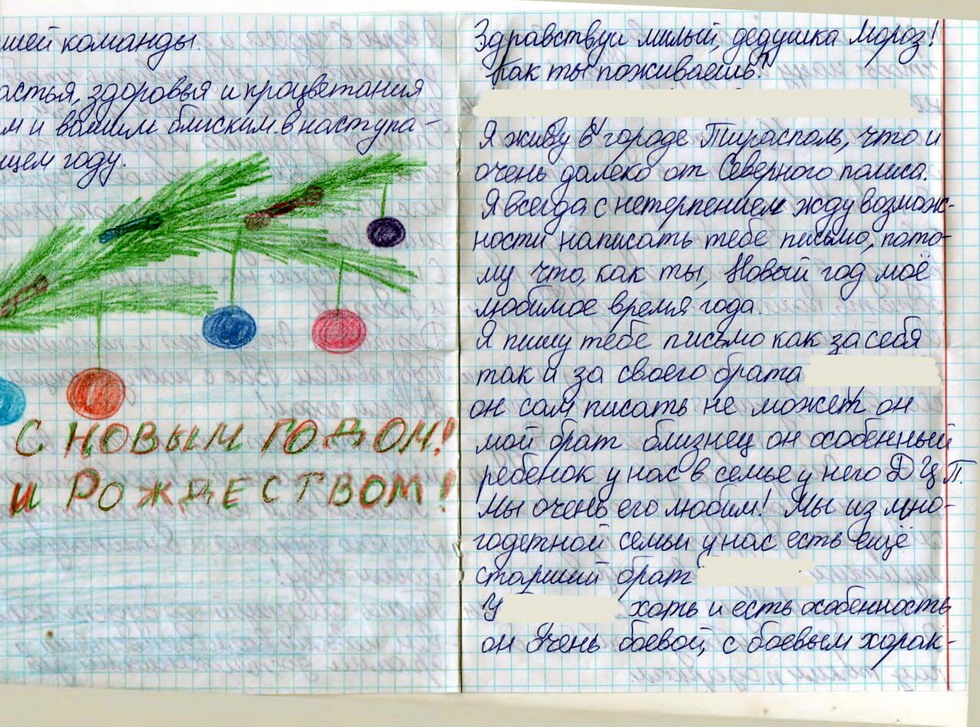 шей команды.
астья, здоровья и процветания
м и вашим близким в наступа-
щем году.
С НОВЫМ ГОДОМ!
и РОЖДЕСТВОМ!
Здравствуй милый, дедушка Мороз!
Как ты поживаешь?
Я живу в городе Тирасполь, что и
очень далеко от Северного полиса.
Я всегда с нетерпением жду возмож-
ности написать тебе письмо, пото-
му что, как ты, Новый год моё
любимое время года.
Я пишу тебе письмо как за себя
так и за своего брата
он сам писать не может он
мой брат близнец он особенный
ребенок у нас в семье у него ДЦП.
Мы очень его любим! Мы из мно-
годетной семьи у нас есть ещё
старший брат
У хоть и есть особенность
он очень боевой, с боевым харак-